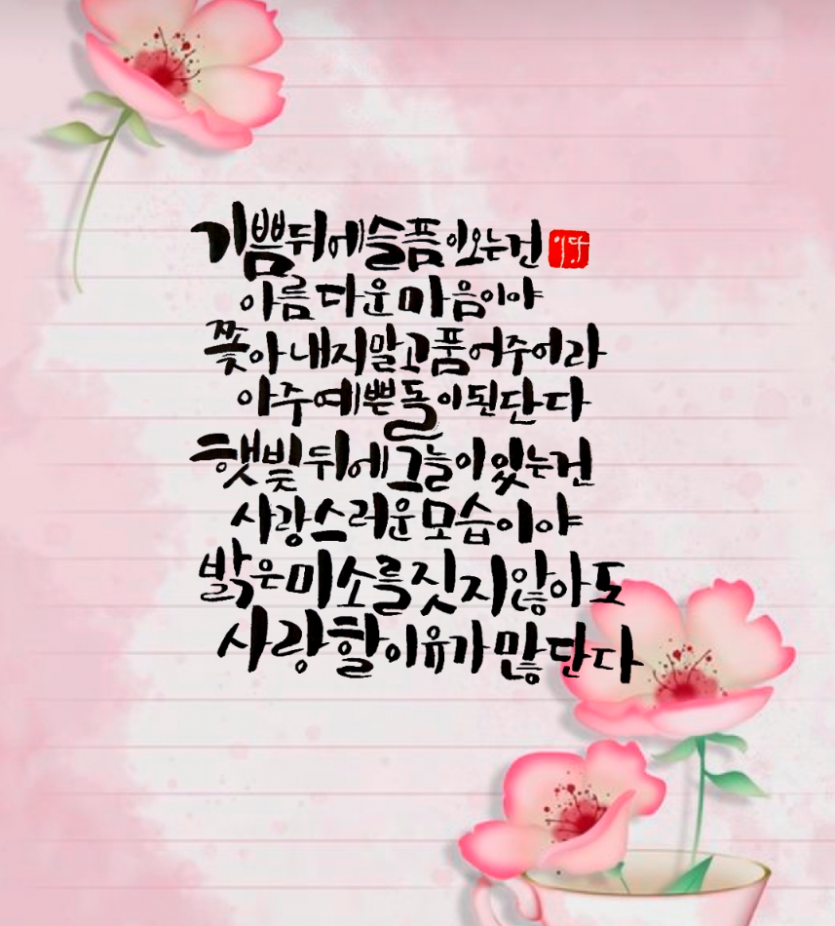 기쁨뒤에슬픔이오는건
아름다운마음이야
쫓아내지말고품어주어라
아주예쁜돌이된단다
햇빛뒤에그늘이있는건
사랑스러운모습이야
밝은미소를짓지않아도
사랑할이유가많단다